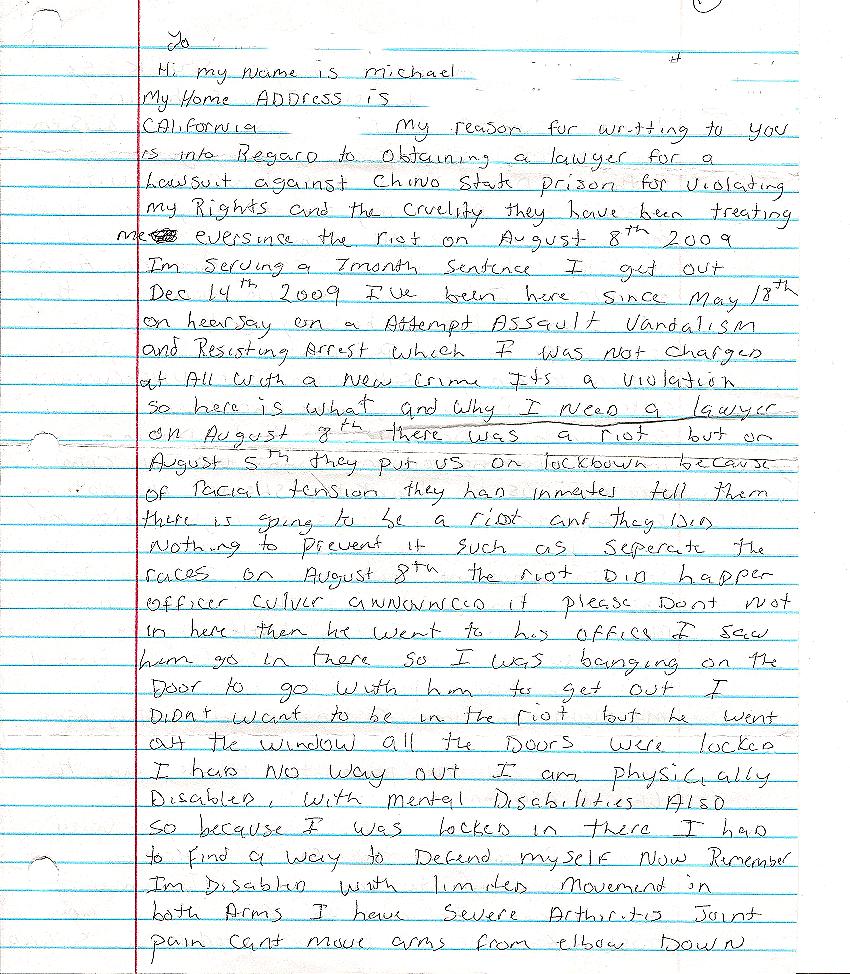 To
#
Hi my name is michael
My Home ADDRess is
CAliFornia My reason for writting to you
is into Regard to Obtaining a lawyer for a
Lawsuit against Chino State prison for violating
my Rights and the Cruelity they have been treating
me eversince the riot on August 8th 2009
Im Serving a 7month Sentence I get out
Dec 14th 2009 I've been here since May 18th
on hearsay on a Attempt Assault Vandalism
and Resisting Arrest which I was not charged
at All with a New Crime Its a violation
so here is what and why I need a lawyer
on August 8th there was a riot but on
August 5th they put us on lockdown because
of racial tension they had inmates tell them
there is going to be a riot and they DiD
Nothing to prevent it such as seperate the
races on August 8th the riot DiD happen
officer Culver announced it please Dont riot
in here then he went to his office I saw
him go in there so I was banging on the
Door to go with him to get out I
DiDnt want to be in the riot but he went
out the window all the Doors were locked
I had no way out I am physically
Disabled, with mental Disabilities Also
so because I was locked in there I had
to find a way to Defend myself Now Remember
Im Disabled with limited Movement in
both Arms I have Severe Arthiritis Joint
pain cant move arms from elbow Down